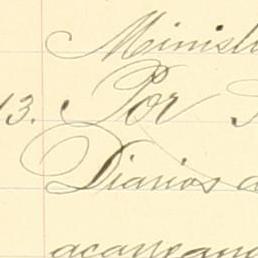 Minist
13. Por
Diarios d
acarrean